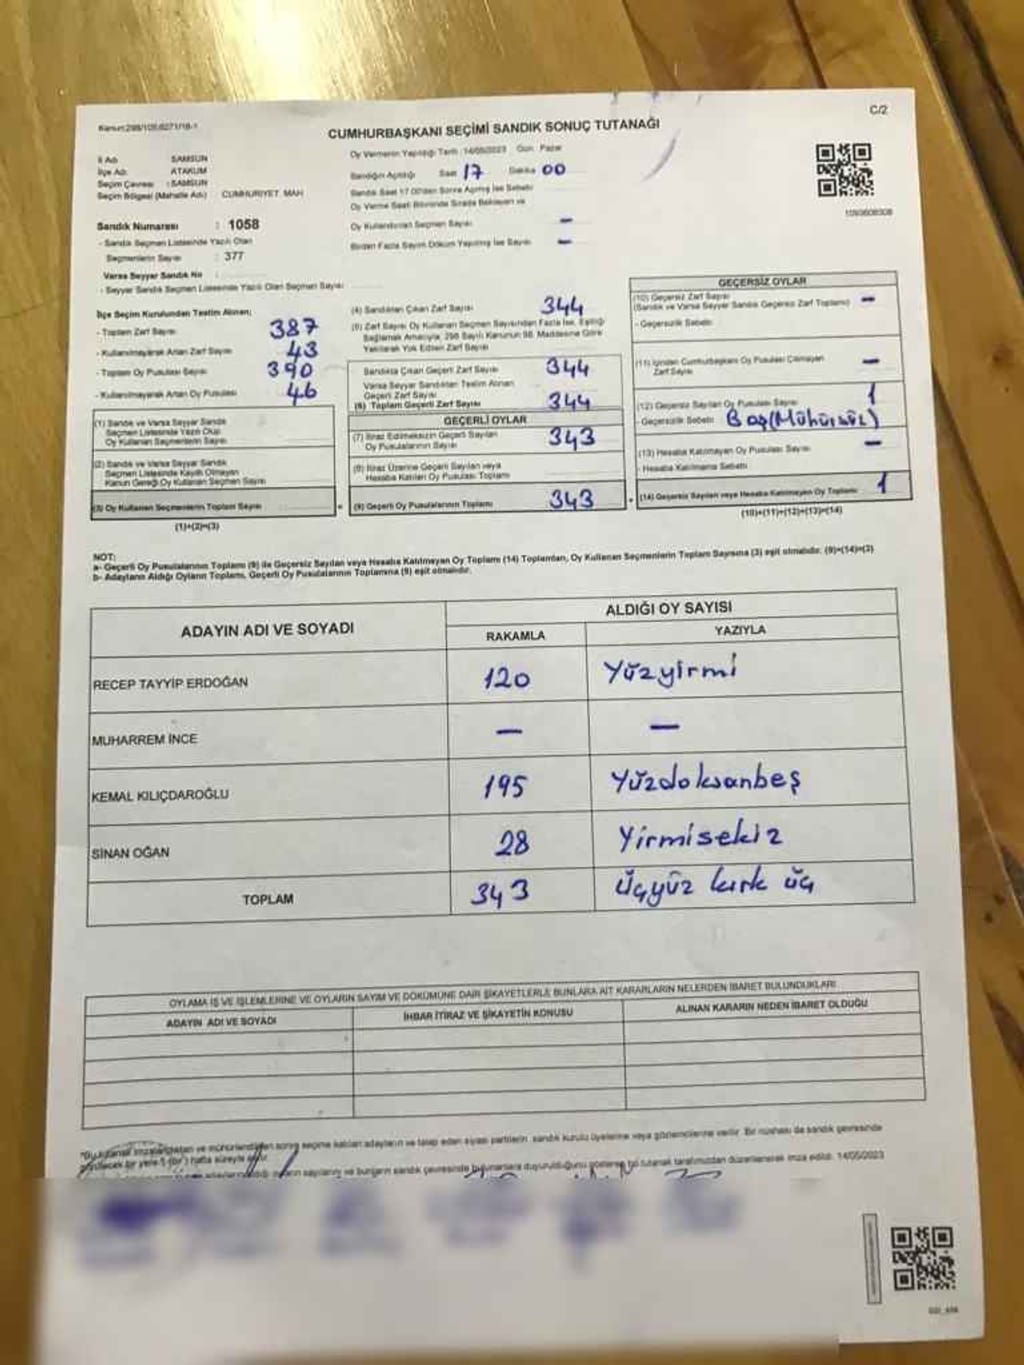 Kanun:298/105;6271/18-1
C/2
CUMHURBAŞKANI SEÇİMİ SANDIK SONUÇ TUTANAĞI
İl Adı SAMSUN
İlçe Adı ATAKUM
Seçim Çevresi : SAMSUN
Seçim Bölgesi (Mahalle Adı) CUMHURİYET MAH
Oy Vermenin Yapıldığı Tarih :14/05/2023 Gün: Pazar
Sandığın Açıldığı Saat 17 Dakika 00
Sandık Saat 17.00'den Sonra Açılmış İse Sebebi
Oy Verme Saati Bitiminde Sırada Bekleyen ve
Oy Kullandırılan Seçmen Sayısı –
Birden Fazla Sayım Döküm Yapılmış İse Sayısı –
1093608308
Sandık Numarası : 1058
- Sandık Seçmen Listesinde Yazılı Olan
Seçmenlerin Sayısı : 377
Varsa Seyyar Sandık No :
- Seyyar Sandık Seçmen Listesinde Yazılı Olan Seçmen Sayısı
İlçe Seçim Kurulundan Teslim Alınan;
- Toplam Zarf Sayısı 387
- Kullanılmayarak Artan Zarf Sayısı 43
- Toplam Oy Pusulası Sayısı 390
- Kullanılmayarak Artan Oy Pusulası 46
(1) Sandık ve Varsa Seyyar Sandık
Seçmen Listesinde Yazılı Olup
Oy Kullanan Seçmenlerin Sayısı
(2) Sandık ve Varsa Seyyar Sandık
Seçmen Listesinde Kaydı Olmayan
Kanun Gereği Oy Kullanan Seçmen Sayısı
(3) Oy Kullanan Seçmenlerin Toplam Sayısı
(1)+(2)=(3)
(4) Sandıktan Çıkan Zarf Sayısı 344
(5) Zarf Sayısı Oy Kullanan Seçmen Sayısından Fazla İse, Eşitliği
Sağlamak Amacıyla, 298 Sayılı Kanunun 98. Maddesine Göre
Yakılarak Yok Edilen Zarf Sayısı
Sandıkta Çıkan Geçerli Zarf Sayısı 344
Varsa Seyyar Sandıktan Teslim Alınan
Geçerli Zarf Sayısı
(6) Toplam Geçerli Zarf Sayısı 344
GEÇERLİ OYLAR
(7) İtiraz Edilmeksizin Geçerli Sayılan
Oy Pusulalarının Sayısı 343
(8) İtiraz Üzerine Geçerli Sayılan veya
Hesaba Katılan Oy Pusulası Toplamı
(9) Geçerli Oy Pusulalarının Toplamı 343
GEÇERSİZ OYLAR
(10) Geçersiz Zarf Sayısı –
(Sandık ve Varsa Seyyar Sandık Geçersiz Zarf Toplamı)
- Geçersizlik Sebebi:
(11) İçinden Cumhurbaşkanı Oy Pusulası Çıkmayan
Zarf Sayısı –
(12) Geçersiz Sayılan Oy Pusulası Sayısı 1
- Geçersizlik Sebebi: Boş(Mühürsüz)
(13) Hesaba Katılmayan Oy Pusulası Sayısı –
- Hesaba Katılmama Sebebi
(14) Geçersiz Sayılan veya Hesaba Katılmayan Oy Toplamı 1
(10)+(11)+(12)+(13)=(14)
NOT:
a- Geçerli Oy Pusulalarının Toplamı (9) ile Geçersiz Sayılan veya Hesaba Katılmayan Oy Toplamı (14) Toplamları, Oy Kullanan Seçmenlerin Toplam Sayısına (3) eşit olmalıdır. (9)+(14)=(3)
b- Adayların Aldığı Oyların Toplamı, Geçerli Oy Pusulalarının Toplamına (9) eşit olmalıdır.
ADAYIN ADI VE SOYADI
ALDIĞI OY SAYISI
RAKAMLA YAZIYLA
RECEP TAYYİP ERDOĞAN 120 Yüzyirmi
MUHARREM İNCE – –
KEMAL KILIÇDAROĞLU 195 Yüzdoksanbeş
SİNAN OĞAN 28 Yirmisekiz
TOPLAM 343 Üçyüz kırk üç
OYLAMA İŞ VE İŞLEMLERİNE VE OYLARIN SAYIM VE DÖKÜMÜNE DAİR ŞİKAYETLERLE BUNLARA AİT KARARLARIN NELERDEN İBARET BULUNDUKLARI
ADAYIN ADI VE SOYADI İHBAR İTİRAZ VE ŞİKAYETİN KONUSU ALINAN KARARIN NEDEN İBARET OLDUĞU
*Bu tutanak imzalandıktan ve mühürlendikten sonra seçime katılan adayların ve talep eden siyasi partilerin sandık kurulu üyelerine veya gözlemcilerine verilir. Bir nüshası da sandık çevresinde